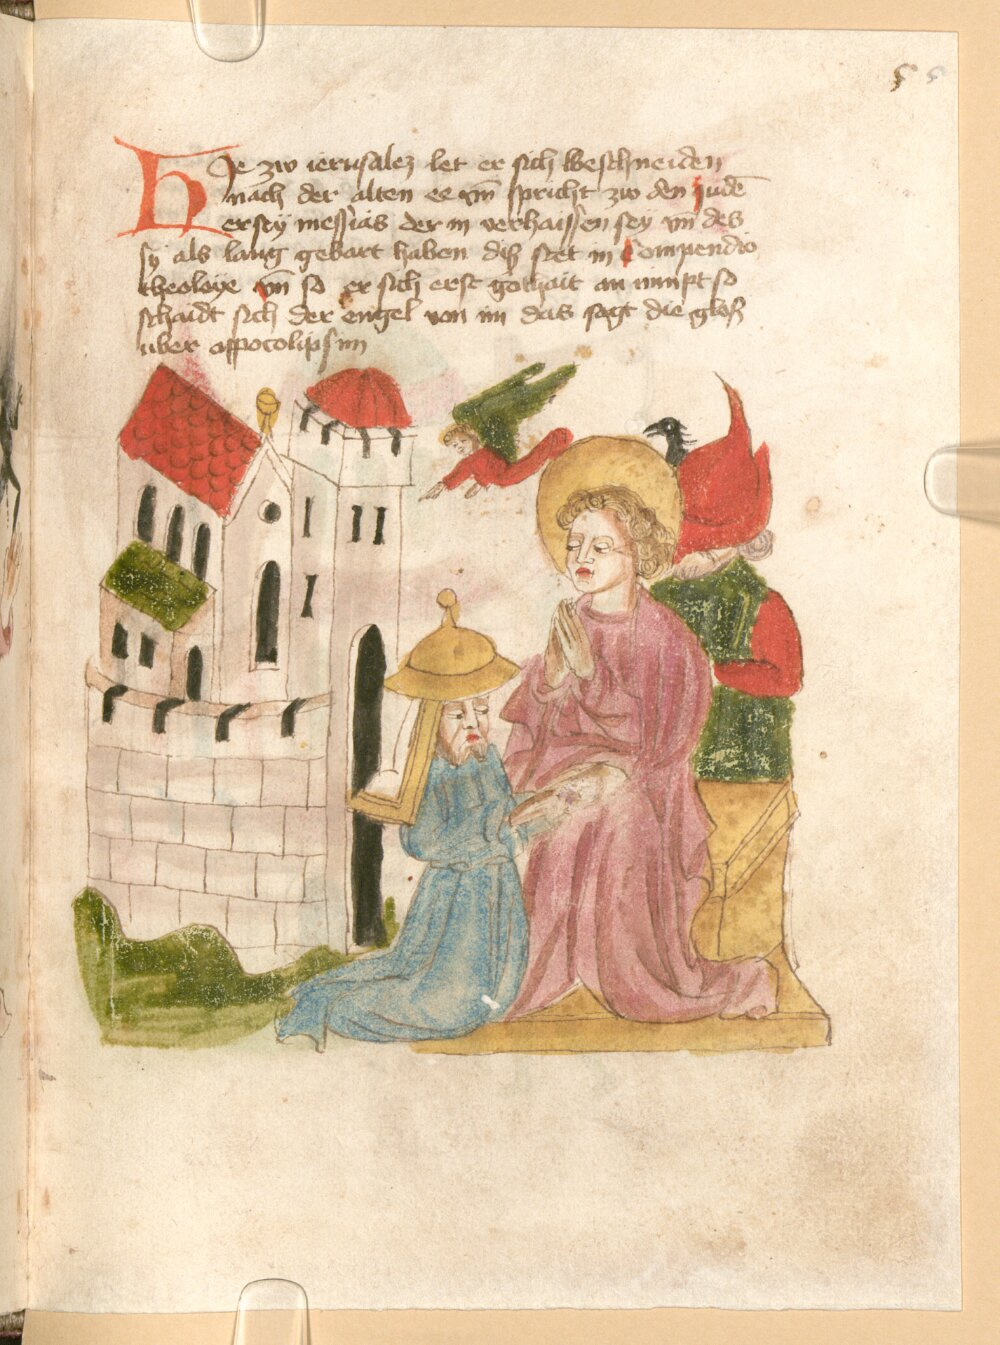 5 5
Hye zw ierusalez let er sich beschneiden
nach der alten ee vn̄ spricht zw den judē
er sey messias der in verhaissen sey vn̄ des
sy als lang gebart haben diß stet in Compendio
theoloye vn̄ so er sich erst gothait an nimpt so
schaidt sich der engel von im das sagt die gloß
uber appocolipsim